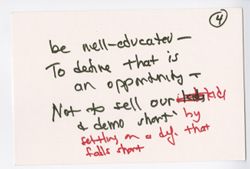 4
be well-educated —
To define that is
an opportunity —
Not to sell our kids
& demo short by
settling on a def. that
falls short